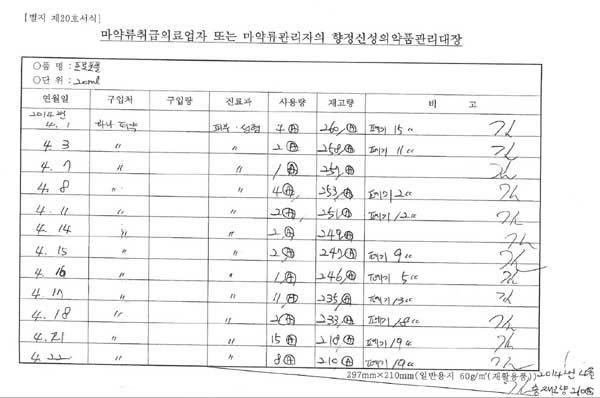 [별지 제20호서식]
마약류취급의료업자 또는 마약류관리자의 향정신성의약품관리대장
○품 명 : 프로포폴
○단 위 : 20ml
연월일 구입처 구입량 진료과 사용량 재고량 비 고
2014년
4. 1 하나 제약 피부·성형 4 260 폐기 15 cc
4. 3 〃 〃 2 258 폐기 11 cc
4. 7 〃 〃 1 257
4. 8 〃 〃 4 253 폐기 2 cc
4. 11 〃 〃 2 251 폐기 12 cc
4. 14 〃 〃 2 249
4. 15 〃 〃 2 247 폐기 9 cc
4. 16 〃 〃 1 246 폐기 5 cc
4. 17 〃 〃 11 235 폐기 13 cc
4. 18 〃 〃 2 233 폐기 18 cc
4. 21 〃 〃 15 218 폐기 19 cc
4. 22 〃 〃 8 210 폐기 19 cc
297mm×210mm(일반용지 60g/㎡(재활용품))
2014년 4월
총재고량 210